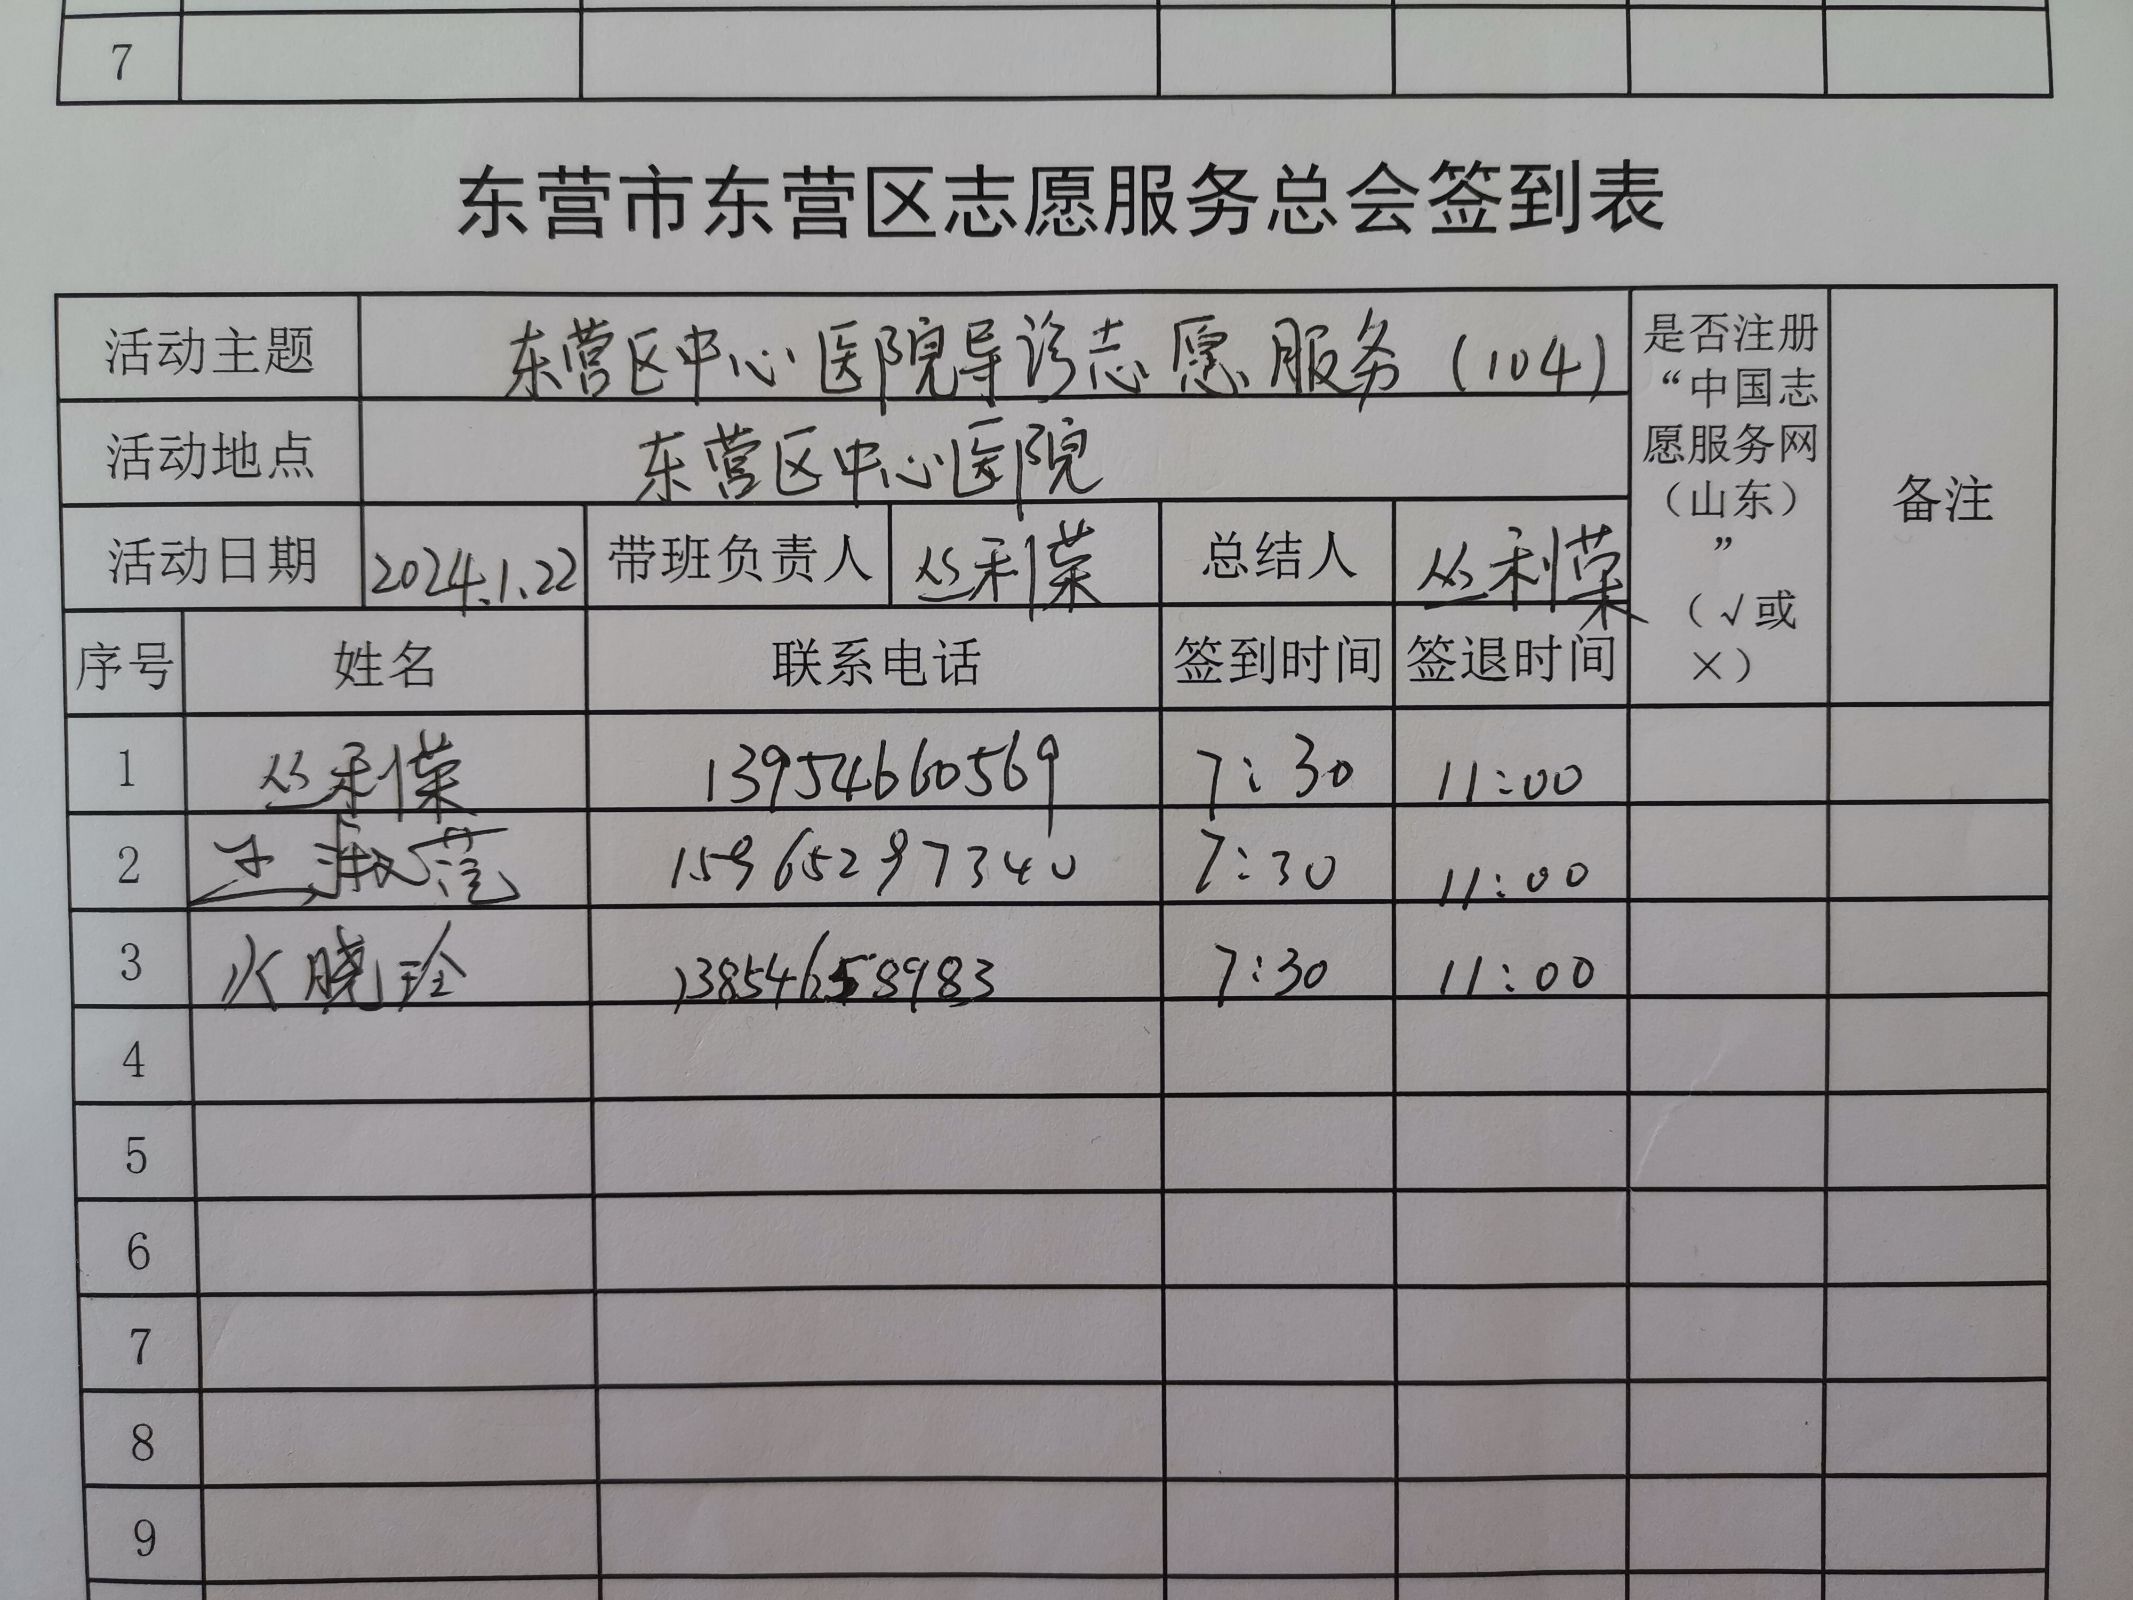 7
东营市东营区志愿服务总会签到表
活动主题 东营区中心医院导诊志愿服务(104) 是否注册“中国志愿服务网（山东）”（√或×） 备注
活动地点 东营区中心医院
活动日期 2024.1.22 带班负责人 丛利荣 总结人 丛利荣
序号 姓名 联系电话 签到时间 签退时间
1 丛利荣 13954660569 7:30 11:00
2 王淑范 15965297340 7:30 11:00
3 晓玲 7:30 11:00
4
5
6
7
8
9